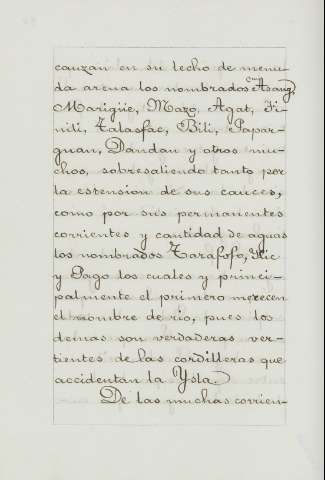 cauzan en su lecho de menu-
da arena los nombrados Asang,
Marigüe, Mazo, Agat, Fi-
nili, Talasfac, Bili, Papar-
guan, Dandan y otros mu-
chos, sobresaliendo tanto por
la estension de sus cauces,
como por sus permanentes
corrientes y cantidad de aguas
los nombrados Tarafofo, Ilic
y Pago los cuales y princi-
palmente el primero merecen
el nombre de rio, pues los
demas son verdaderas ver-
tientes de las cordilleras que
accidentan la Ysla.
De las muchas corrien-